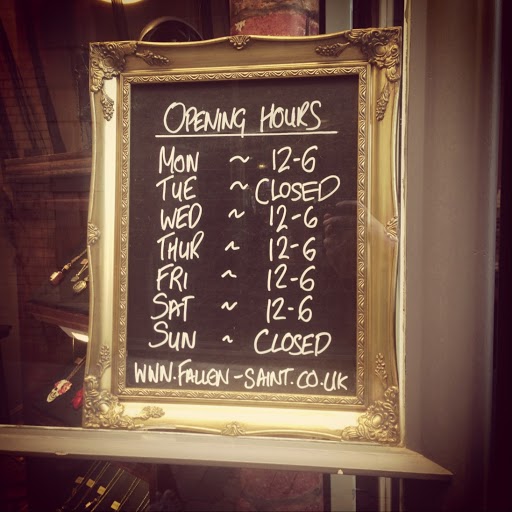 OPENING HOURS
MON ~ 12-6
TUE ~ CLOSED
WED ~ 12-6
THUR ~ 12-6
FRI ~ 12-6
SAT ~ 12-6
SUN ~ CLOSED
WWW.FALLEN-SAINT.CO.UK